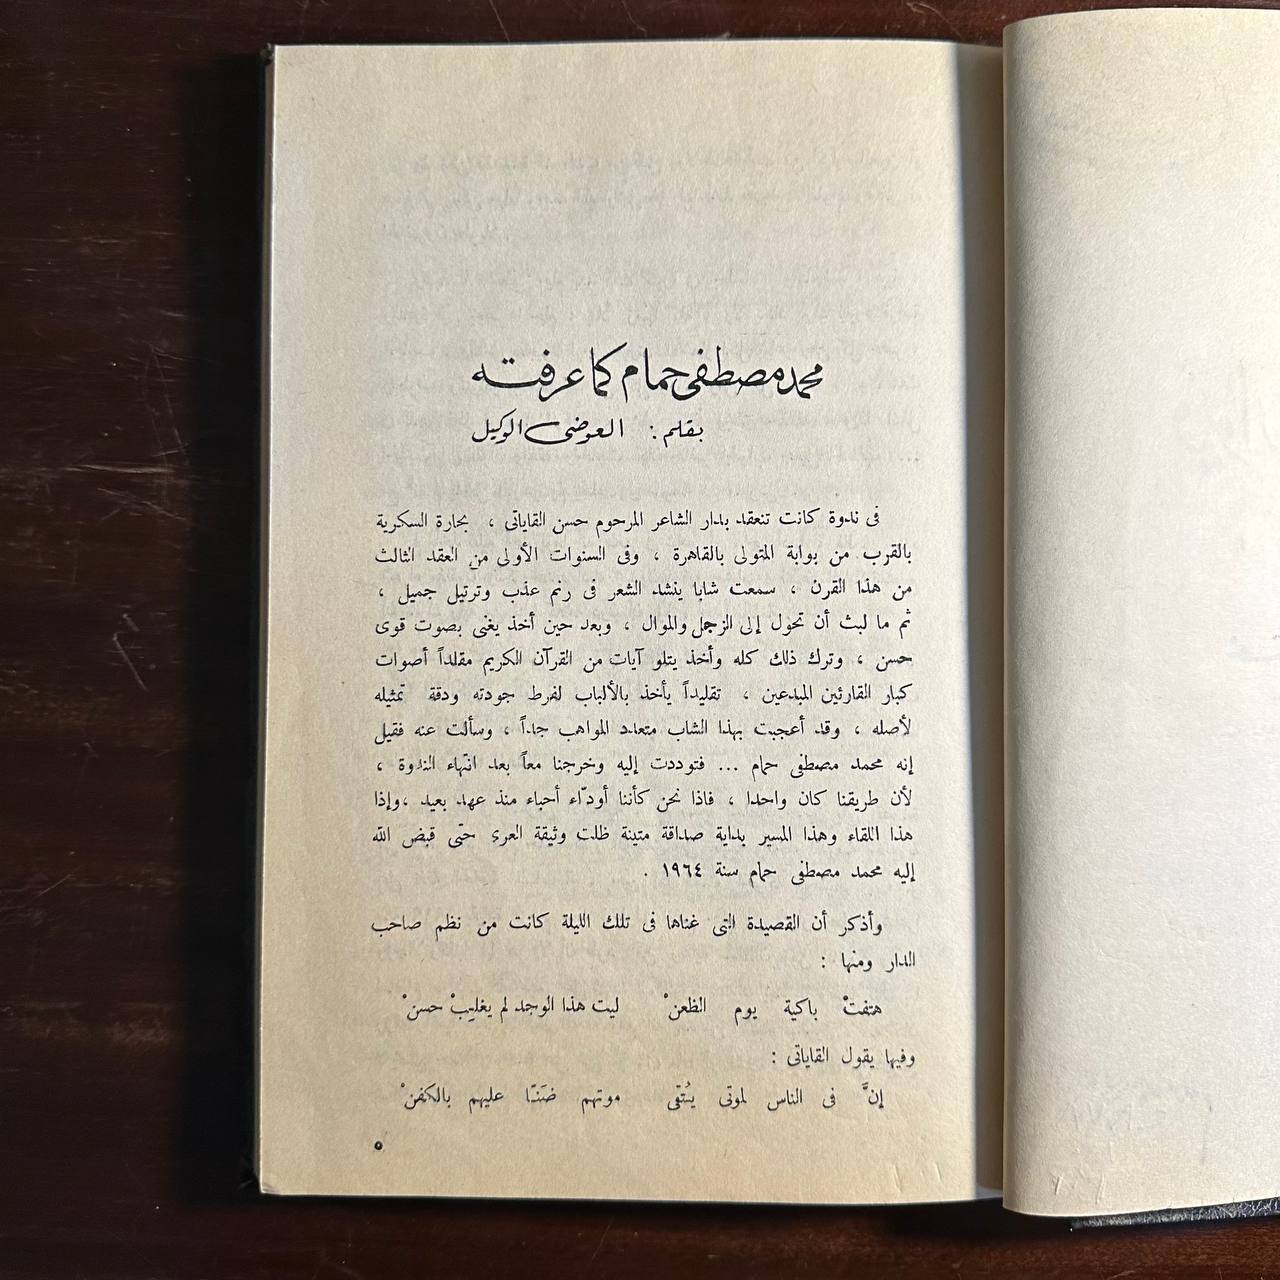 محمد مصطفى حمام كما عرفته
بقلم : العوضى الوكيل
فى ندوة كانت تنعقد بدار الشاعر المرحوم حسن القاياتى ، بحارة السكرية
بالقرب من بوابة المتولى بالقاهرة ، وفى السنوات الأولى من العقد الثالث
من هذا القرن ، سمعت شابا ينشد الشعر فى رنم عذب وترتيل جميل ،
ثم ما لبث أن تحول إلى الزجل والموال ، وبعد حين أخذ يغنى بصوت قوى
حسن ، وترك ذلك كله وأخذ يتلو آيات من القرآن الكريم مقلداً أصوات
كبار القارئين المبدعين ، تقليداً يأخذ بالألباب لفرط جودته ودقة تمثيله
لأصله ، وقد أعجبت بهذا الشاب متعدد المواهب جداً ، وسألت عنه فقيل
إنه محمد مصطفى حمام ... فتوددت إليه وخرجنا معاً بعد انتهاء الندوة ،
لأن طريقنا كان واحدا ، فاذا نحن كأننا أودّاء أحباء منذ عهد بعيد ،وإذا
هذا اللقاء وهذا المسير بداية صداقة متينة ظلت وثيقة العرى حتى قبض الله
إليه محمد مصطفى حمام سنة ١٩٦٤ .
وأذكر أن القصيدة التى غناها فى تلك الليلة كانت من نظم صاحب
الدار ومنها :
هتفتْ باكية يوم الظعنْ ليت هذا الوجد لم يغلبْ حسنْ
وفيها يقول القاياتى :
إنَّ فى الناس لموتى يُتقى موتهم ضَنًّا عليهم بالكفنْ
٥